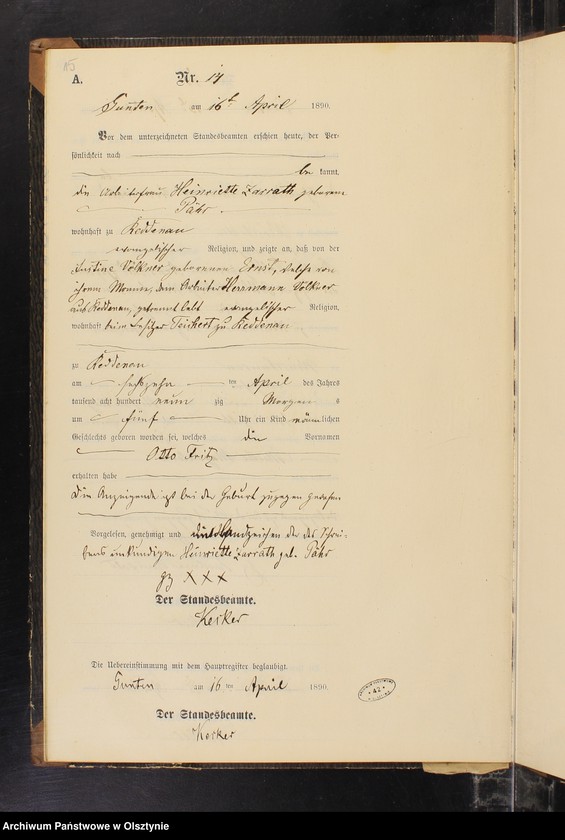 15
A.
Nr. 14
Gunten am 16t April 1890.
Vor dem unterzeichneten Standesbeamten erschien heute, der Per-
sönlichkeit nach
be kannt,
die Arbeiterfrau Heinriette Zarrath geborene
Pähr
wohnhaft zu Keddenau
evangelischer Religion, und zeigte an, daß von der
Justine Völkner geborenen Ernst, welche von
ihrem Manne, dem Arbeiter Herrmann Völkner
aus Keddenau, getrennt lebt evangelischer Religion,
wohnhaft beim Besitzer Teichert zu Keddenau
zu Keddenau
am sechszehn ten April des Jahres
tausend acht hundert neun zig Morgen s
um fünf Uhr ein Kind männlichen
Geschlechts geboren worden sei, welches die Vornamen
Otto Fritz
erhalten habe
Die Anzeigende ist bei der Geburt zugegen gewesen
Vorgelesen, genehmigt und Handzeichen der des Schrei-
bens unkundigen Heinriette Zarrath geb. Pähr
gz XXX
Der Standesbeamte.
Kerker
Die Uebereinstimmung mit dem Hauptregister beglaubigt.
Gunten am 16 ten April 1890.
Der Standesbeamte.
Kerker
42
Archiwum Państwowe w Olsztynie